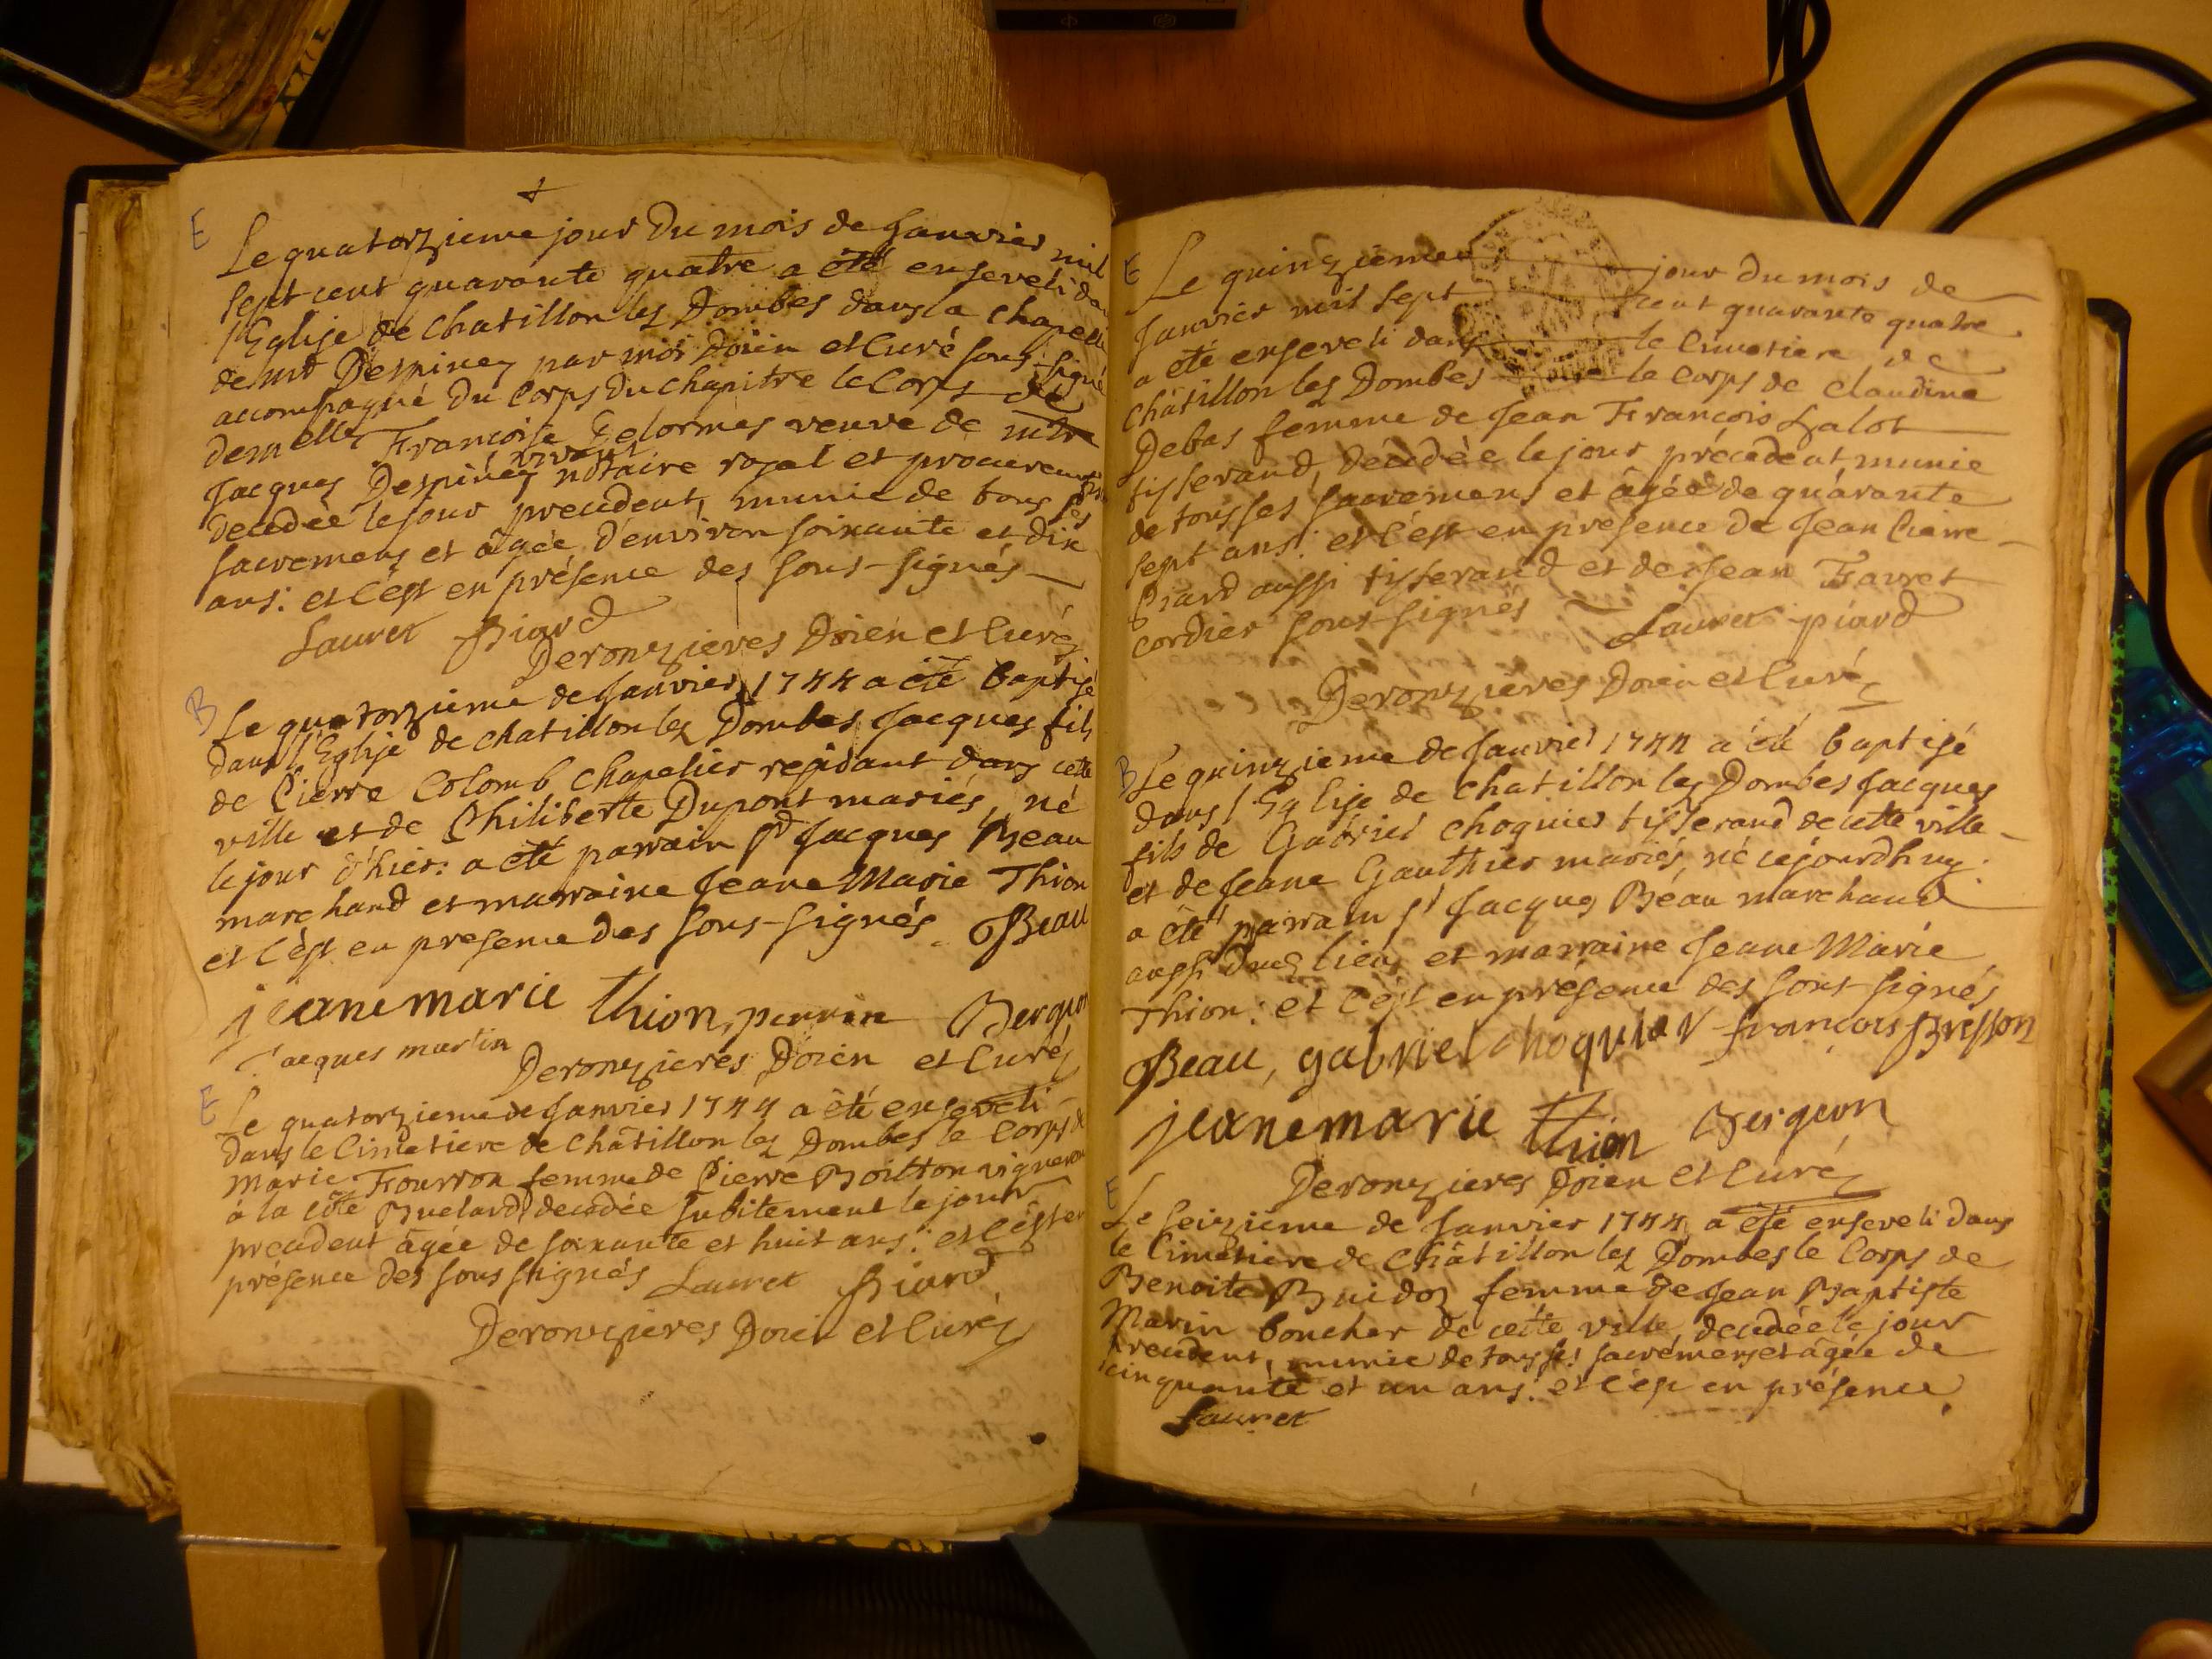 E
Le quatorzieme jour du mois de Janvier mil
sept cent quarante quatre a été enseveli da
l'Eglise de Chatillon lez Dombes dans la chapelle
de mrs Despiney par moi Doien et Curé sous-signé
accompagné du Corps du chapitre le Corps de
demelle Françoise Delormes veuve de mtre
vivant
Jacques Despiney notaire royal et procureur
decedée le jour precedent, munie de tous ses
sacremens et âgée d'environ soixante et dix
ans: et c'est en présence des sous-signés
Lauret Piard
Deronzieres Doien et Curé
B
Le quatorzieme de Janvier 1744 a été baptisé
dans l'Eglise de chatillon lez Dombes Jacques fils
de Pierre Colomb chapelier residant dans cette
ville et de Philiberte Dupont mariés, né
le jour d'hier: a été parrain Sr Jacques Beau
marchand et marraine Jeane Marie Thion
et c'est en presence des sous-signés. Beau
jeanemarie thion, perrin Bergeon
Jacques martin
Deronzieres Doien et Curé
E
Le quatorzieme de Janvier 1744 a été enseveli
dans le Cimetiere de Châtillon lez Dombes le Corps de
Marie Fourron femme de Pierre Boitton vigneron
à la côte Buelard, decedée subitement le jour
precedent âgée de soixante et huit ans: et c'est en
présence des sous signés Lauret Piard
Deronzieres Doien et Curé
E
Le quinzieme jour du mois de
Janvier mil sept cent quarante quatre
a été enseveli dans le Cimetiere de
Châtillon lez Dombes le Corps de Claudine
Debas femme de Jean François Lalot
tisserand, decedée le jour précedent, munie
de tous ses sacremens et âgée de quarante
sept ans: et c'est en présence de Jean Pierre
Piard aussi tisserand et de Jean Favret
cordier sous-signés Lauret piard
Deronzieres Doien et Curé
B
Le quinzieme de Janvier 1744 a été baptisé
dans l'Eglise de Chatillon lez Dombes Jacques
fils de Gabriel Choquier tisserand de cette ville
et de Jeane Gauthier mariés, né cejourdhuy
a été parrain Sr Jacques Béau marchand
aussi dud lieu, et marraine Jeane Marie
Thion: et c'est en présence des sous signés
Beau, gabriel choquier françois Brisson
jeanemarie thion Bergeon
Deronzieres Doien et Curé
E
Le seizieme de Janvier 1744 a été enseveli dans
le Cimetiere de Châtillon lez Dombes le Corps de
Benoite Buidoz femme de Jean Baptiste
Marin boucher de cette ville, decedée le jour
precedent, munie de tous ses sacremens et âgée de
cinquante et un ans: et c'est en présence
Lauret